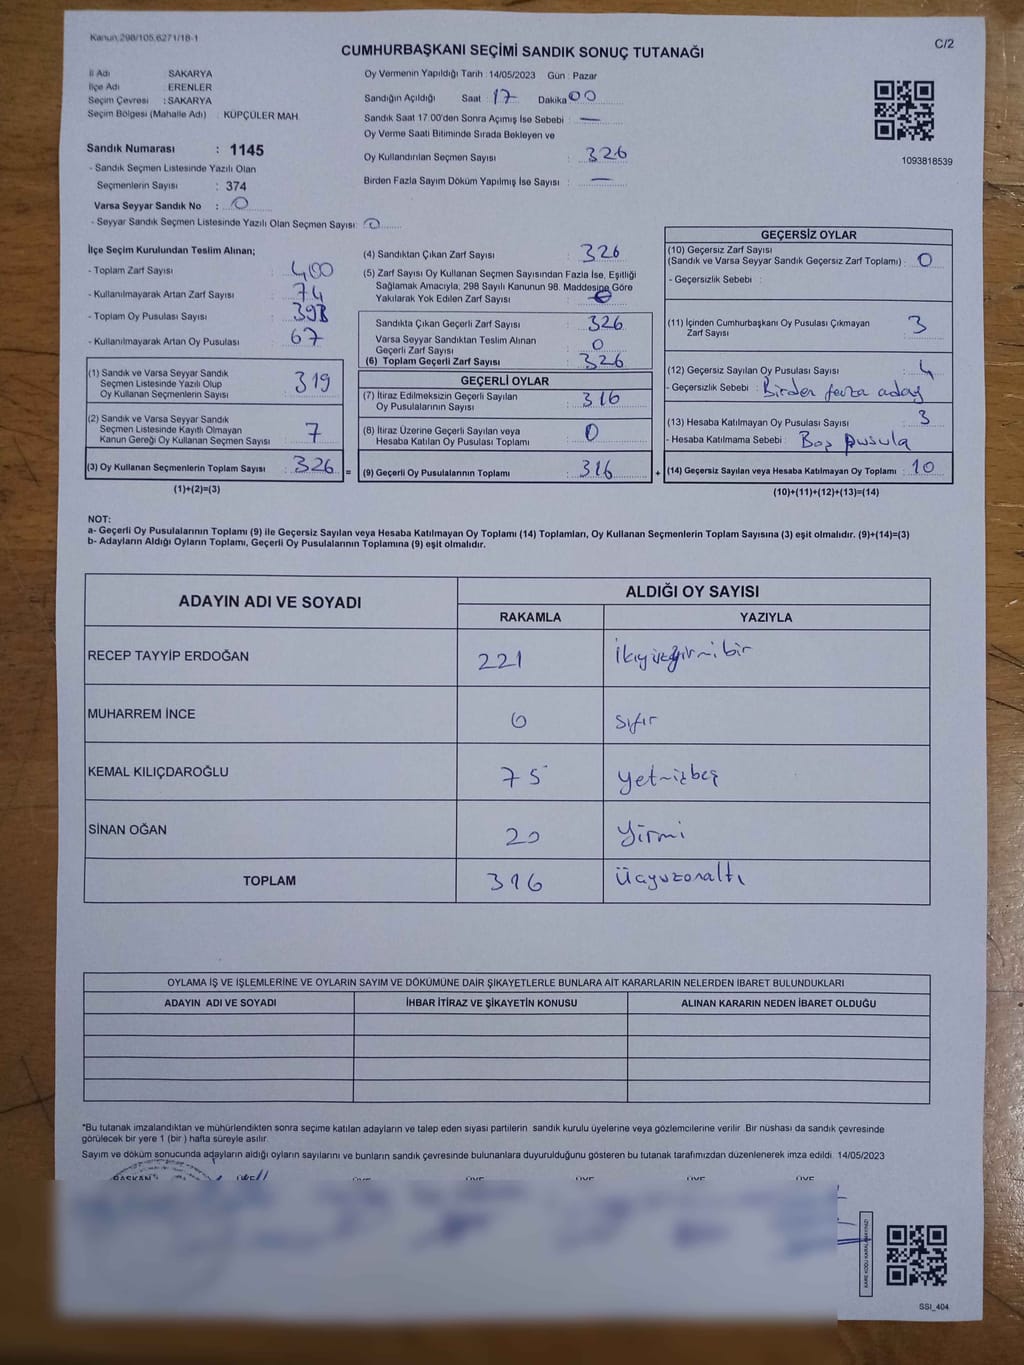 Kanun 298/105,6271/18-1
C/2
CUMHURBAŞKANI SEÇİMİ SANDIK SONUÇ TUTANAĞI
İl Adı : SAKARYA
İlçe Adı : ERENLER
Seçim Çevresi : SAKARYA
Seçim Bölgesi (Mahalle Adı) : KÜPÇÜLER MAH.
Sandık Numarası : 1145
- Sandık Seçmen Listesinde Yazılı Olan
Seçmenlerin Sayısı : 374
Varsa Seyyar Sandık No : 0
- Seyyar Sandık Seçmen Listesinde Yazılı Olan Seçmen Sayısı: 0
Oy Vermenin Yapıldığı Tarih : 14/05/2023 Gün : Pazar
Sandığın Açıldığı Saat : 17 Dakika 00
Sandık Saat 17.00'den Sonra Açımış İse Sebebi : —
Oy Verme Saati Bitiminde Sırada Bekleyen ve
Oy Kullandırılan Seçmen Sayısı : 326
Birden Fazla Sayım Döküm Yapılmış İse Sayısı : —
1093818539
İlçe Seçim Kurulundan Teslim Alınan;
- Toplam Zarf Sayısı : 400
- Kullanılmayarak Artan Zarf Sayısı : 74
- Toplam Oy Pusulası Sayısı : 393
- Kullanılmayarak Artan Oy Pusulası : 67
(1) Sandık ve Varsa Seyyar Sandık
Seçmen Listesinde Yazılı Olup
Oy Kullanan Seçmenlerin Sayısı : 319
(2) Sandık ve Varsa Seyyar Sandık
Seçmen Listesinde Kayıtlı Olmayan
Kanun Gereği Oy Kullanan Seçmen Sayısı : 7
(3) Oy Kullanan Seçmenlerin Toplam Sayısı : 326 =
(1)+(2)=(3)
(4) Sandıktan Çıkan Zarf Sayısı : 326
(5) Zarf Sayısı Oy Kullanan Seçmen Sayısından Fazla İse, Eşitliği
Sağlamak Amacıyla, 298 Sayılı Kanunun 98. Maddesine Göre
Yakılarak Yok Edilen Zarf Sayısı : 0
Sandıkta Çıkan Geçerli Zarf Sayısı : 326
Varsa Seyyar Sandıktan Teslim Alınan
Geçerli Zarf Sayısı : 0
(6) Toplam Geçerli Zarf Sayısı : 326
GEÇERLİ OYLAR
(7) İtiraz Edilmeksizin Geçerli Sayılan
Oy Pusulalarının Sayısı : 316
(8) İtiraz Üzerine Geçerli Sayılan veya
Hesaba Katılan Oy Pusulaları Toplamı : 0
(9) Geçerli Oy Pusulalarının Toplamı : 316 +
GEÇERSİZ OYLAR
(10) Geçersiz Zarf Sayısı
(Sandık ve Varsa Seyyar Sandık Geçersiz Zarf Toplamı) : 0
- Geçersizlik Sebebi :
(11) İçinden Cumhurbaşkanı Oy Pusulası Çıkmayan
Zarf Sayısı : 3
(12) Geçersiz Sayılan Oy Pusulası Sayısı : 4
- Geçersizlik Sebebi : Birden fazla aday
(13) Hesaba Katılmayan Oy Pusulası Sayısı : 3
- Hesaba Katılmama Sebebi : Boş Pusula
(14) Geçersiz Sayılan veya Hesaba Katılmayan Oy Toplamı : 10
(10)+(11)+(12)+(13)=(14)
NOT:
a- Geçerli Oy Pusulalarının Toplamı (9) ile Geçersiz Sayılan veya Hesaba Katılmayan Oy Toplamı (14) Toplamları, Oy Kullanan Seçmenlerin Toplam Sayısına (3) eşit olmalıdır. (9)+(14)=(3)
b- Adayların Aldığı Oyların Toplamı, Geçerli Oy Pusulalarının Toplamına (9) eşit olmalıdır.
ADAYIN ADI VE SOYADI ALDIĞI OY SAYISI
RAKAMLA YAZIYLA
RECEP TAYYİP ERDOĞAN 221 ikiyüzyirmibir
MUHARREM İNCE 0 sıfır
KEMAL KILIÇDAROĞLU 75 yetmişbeş
SİNAN OĞAN 20 yirmi
TOPLAM 316 Üçyüzonaltı
OYLAMA İŞ VE İŞLEMLERİNE VE OYLARIN SAYIM VE DÖKÜMÜNE DAİR ŞİKAYETLERLE BUNLARA AİT KARARLARIN NELERDEN İBARET BULUNDUKLARI
ADAYIN ADI VE SOYADI İHBAR İTİRAZ VE ŞİKAYETİN KONUSU ALINAN KARARIN NEDEN İBARET OLDUĞU
*Bu tutanak imzalandıktan ve mühürlendikten sonra seçime katılan adayların ve talep eden siyasi partilerin sandık kurulu üyelerine veya gözlemcilerine verilir. Bir nüshası da sandık çevresinde
görülecek bir yere 1 (bir) hafta süreyle asılır.
Sayım ve döküm sonucunda adayların aldığı oyların sayılarını ve bunların sandık çevresinde bulunanlara duyurulduğunu gösteren bu tutanak tarafımızdan düzenlenerek imza edildi. 14/05/2023
BAŞKAN ÜYE ÜYE ÜYE ÜYE ÜYE
KARE KODU KARALAMAYINIZ!
SSI_404